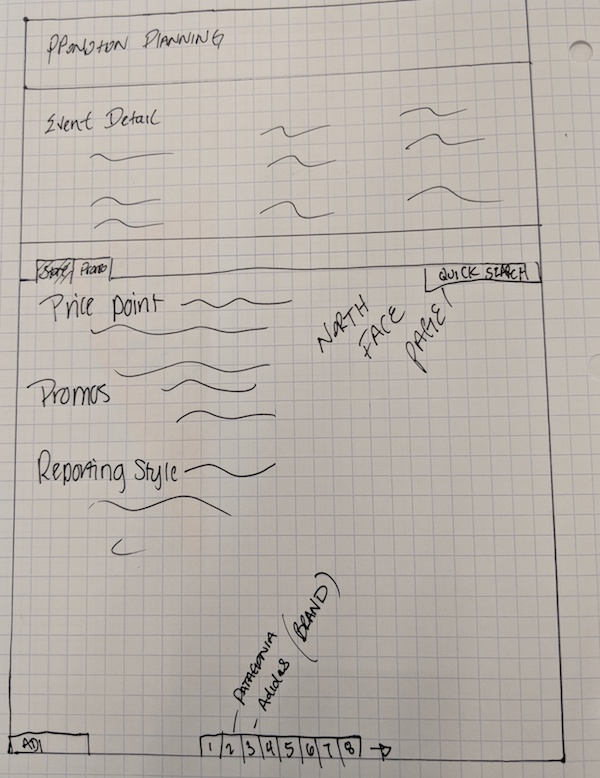 PPOMOTON PLANNING
Event Detail
Store Promo
QUICK SEARCH
Price point
NORTH
FACE
PAGE 1
Promos
Reporting Style
PATAGONIA
Adidas (BRAND)
AD1
1 2 3 4 5 6 7 8